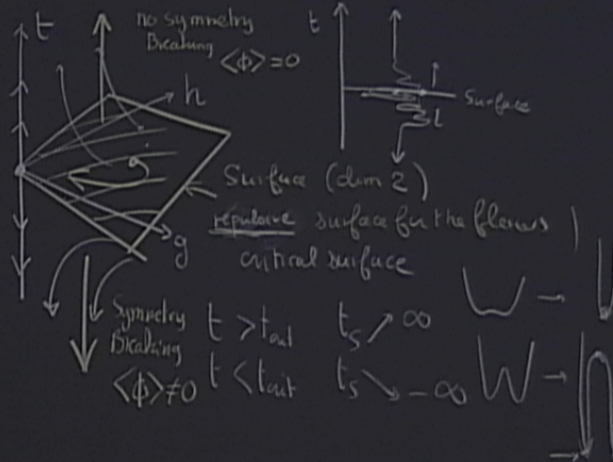 t
no symmetry
Breaking
<ϕ> = 0
h
g
t
Surface
l
Surface (dim 2)
repulsive surface for the flows
critical surface
Symmetry
Breaking
<ϕ> ≠ 0
t > t_crit t_s ↗ ∞
t < t_crit t_s ↘ -∞